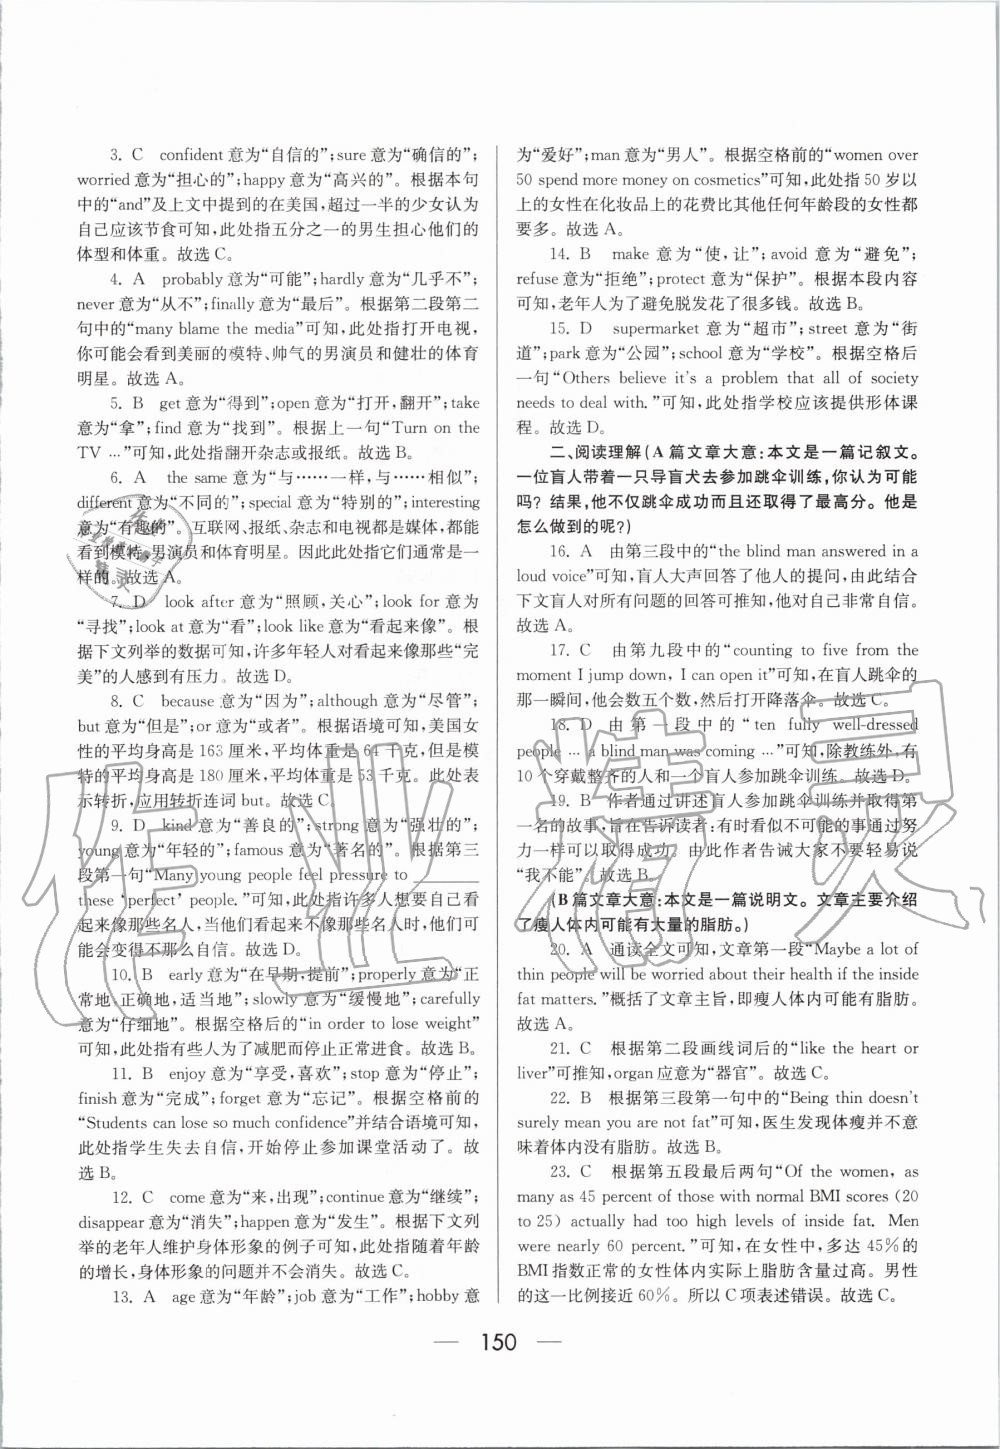 3. C　confident 意为“自信的”;sure 意为“确信的”;
worried 意为“担心的”;happy 意为“高兴的”。根据本句
中的“and”及上文中提到的在美国,超过一半的少女认为
自己应该节食可知,此处指五分之一的男生担心他们的
体型和体重。故选 C。
4. A　probably 意为“可能”;hardly 意为“几乎不”;
never 意为“从不”;finally 意为“最后”。根据第二段第二
句中的“many blame the media”可知,此处指打开电视,
你可能会看到美丽的模特、帅气的男演员和健壮的体育
明星。故选 A。
5. B　get 意为“得到”;open 意为“打开,翻开”;take
意为“拿”;find 意为“找到”。根据上一句“Turn on the
TV …”可知,此处指翻开杂志或报纸。故选 B。
6. A　the same 意为“与……一样,与……相似”;
different 意为“不同的”;special 意为“特别的”;interesting
意为“有趣的”。互联网、报纸、杂志和电视都是媒体,都能
看到模特、男演员和体育明星。因此此处指它们通常是一
样的。故选 A。
7. D　look after 意为“照顾,关心”;look for 意为
“寻找”;look at 意为“看”;look like 意为“看起来像”。根
据下文列举的数据可知,许多年轻人对看起来像那些“完
美”的人感到有压力。故选 D。
8. C　because 意为“因为”;although 意为“尽管”;
but 意为“但是”;or 意为“或者”。根据语境可知,美国女
性的平均身高是 163 厘米,平均体重是 64 千克,但是模
特的平均身高是 180 厘米,平均体重是 53 千克。此处表
示转折,应用转折连词 but。故选 C。
9. D　kind 意为“善良的”;strong 意为“强壮的”;
young 意为“年轻的”;famous 意为“著名的”。根据第三
段第一句“Many young people feel pressure to
these ‘perfect’ people.”可知,此处指许多人想要自己看
起来像那些名人,当他们看起来不像那些名人时,他们可
能会变得不那么自信。故选 D。
10. B　early 意为“在早期,提前”;properly 意为“正
常地,正确地,适当地”;slowly 意为“缓慢地”;carefully
意为“仔细地”。根据空格后的“in order to lose weight”
可知,此处指有些人为了减肥而停止正常进食。故选 B。
11. B　enjoy 意为“享受,喜欢”;stop 意为“停止”;
finish 意为“完成”;forget 意为“忘记”。根据空格前的
“Students can lose so much confidence”并结合语境可知,
此处指学生失去自信,开始停止参加课堂活动了。故
选 B。
12. C　come 意为“来,出现”;continue 意为“继续”;
disappear 意为“消失”;happen 意为“发生”。根据下文列
举的老年人维护身体形象的例子可知,此处指随着年龄
的增长,身体形象的问题并不会消失。故选 C。
13. A　age 意为“年龄”;job 意为“工作”;hobby 意
为“爱好”;man 意为“男人”。根据空格前的“women over
50 spend more money on cosmetics”可知,此处指 50 岁以
上的女性在化妆品上的花费比其他任何年龄段的女性都
要多。故选 A。
14. B　make 意为“使,让”;avoid 意为“避免”;
refuse 意为“拒绝”;protect 意为“保护”。根据本段内容
可知,老年人为了避免脱发花了很多钱。故选 B。
15. D　supermarket 意为“超市”;street 意为“街
道”;park 意为“公园”;school 意为“学校”。根据空格后
一句“Others believe it's a problem that all of society
needs to deal with.”可知,此处指学校应该提供形体课
程。故选 D。
二、阅读理解(A 篇文章大意:本文是一篇记叙文。
一位盲人带着一只导盲犬去参加跳伞训练,你认为可能
吗? 结果,他不仅跳伞成功而且还取得了最高分。他是
怎么做到的呢?)
16. A　由第三段中的“the blind man answered in a
loud voice”可知,盲人大声回答了他人的提问,由此结合
下文盲人对所有问题的回答可推知,他对自己非常自信。
故选 A。
17. C　由第九段中的“counting to five from the
moment I jump down, I can open it”可知,在盲人跳伞的
那一瞬间,他会数五个数,然后打开降落伞。故选 C。
18. D　由第一段中的“ten fully well-dressed
people … a blind man was coming …”可知,除教练外,有
10 个穿戴整齐的人和一个盲人参加跳伞训练。故选 D。
19. B　作者通过讲述盲人参加跳伞训练并取得第
一名的故事,旨在告诉读者:有时看似不可能的事通过努
力一样可以取得成功。由此作者告诫大家不要轻易说
“我不能”。故选 B。
(B 篇文章大意:本文是一篇说明文。文章主要介绍
了瘦人体内可能有大量的脂肪。)
20. A　通读全文可知,文章第一段“Maybe a lot of
thin people will be worried about their health if the inside
fat matters.”概括了文章主旨,即瘦人体内可能有脂肪。
故选 A。
21. C　根据第二段画线词后的“like the heart or
liver”可推知,organ 应意为“器官”。故选 C。
22. B　根据第三段第一句中的“Being thin doesn't
surely mean you are not fat”可知,医生发现体瘦并不意
味着体内没有脂肪。故选 B。
23. C　根据第五段最后两句“Of the women, as
many as 45 percent of those with normal BMI scores (20
to 25) actually had too high levels of inside fat. Men
were nearly 60 percent.”可知,在女性中,多达 45%的
BMI 指数正常的女性体内实际上脂肪含量过高。男性
的这一比例接近 60%。所以 C 项表述错误。故选 C。
— 150 —
作业精灵